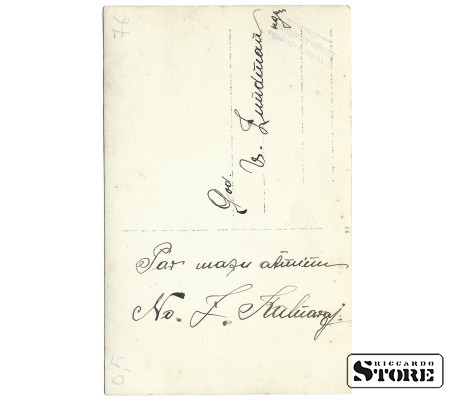 76
God.
V. Zundman kgz
Par mazu atmiņu
No. J. Kalnaraj.
0,5
RICCARDO
STORE